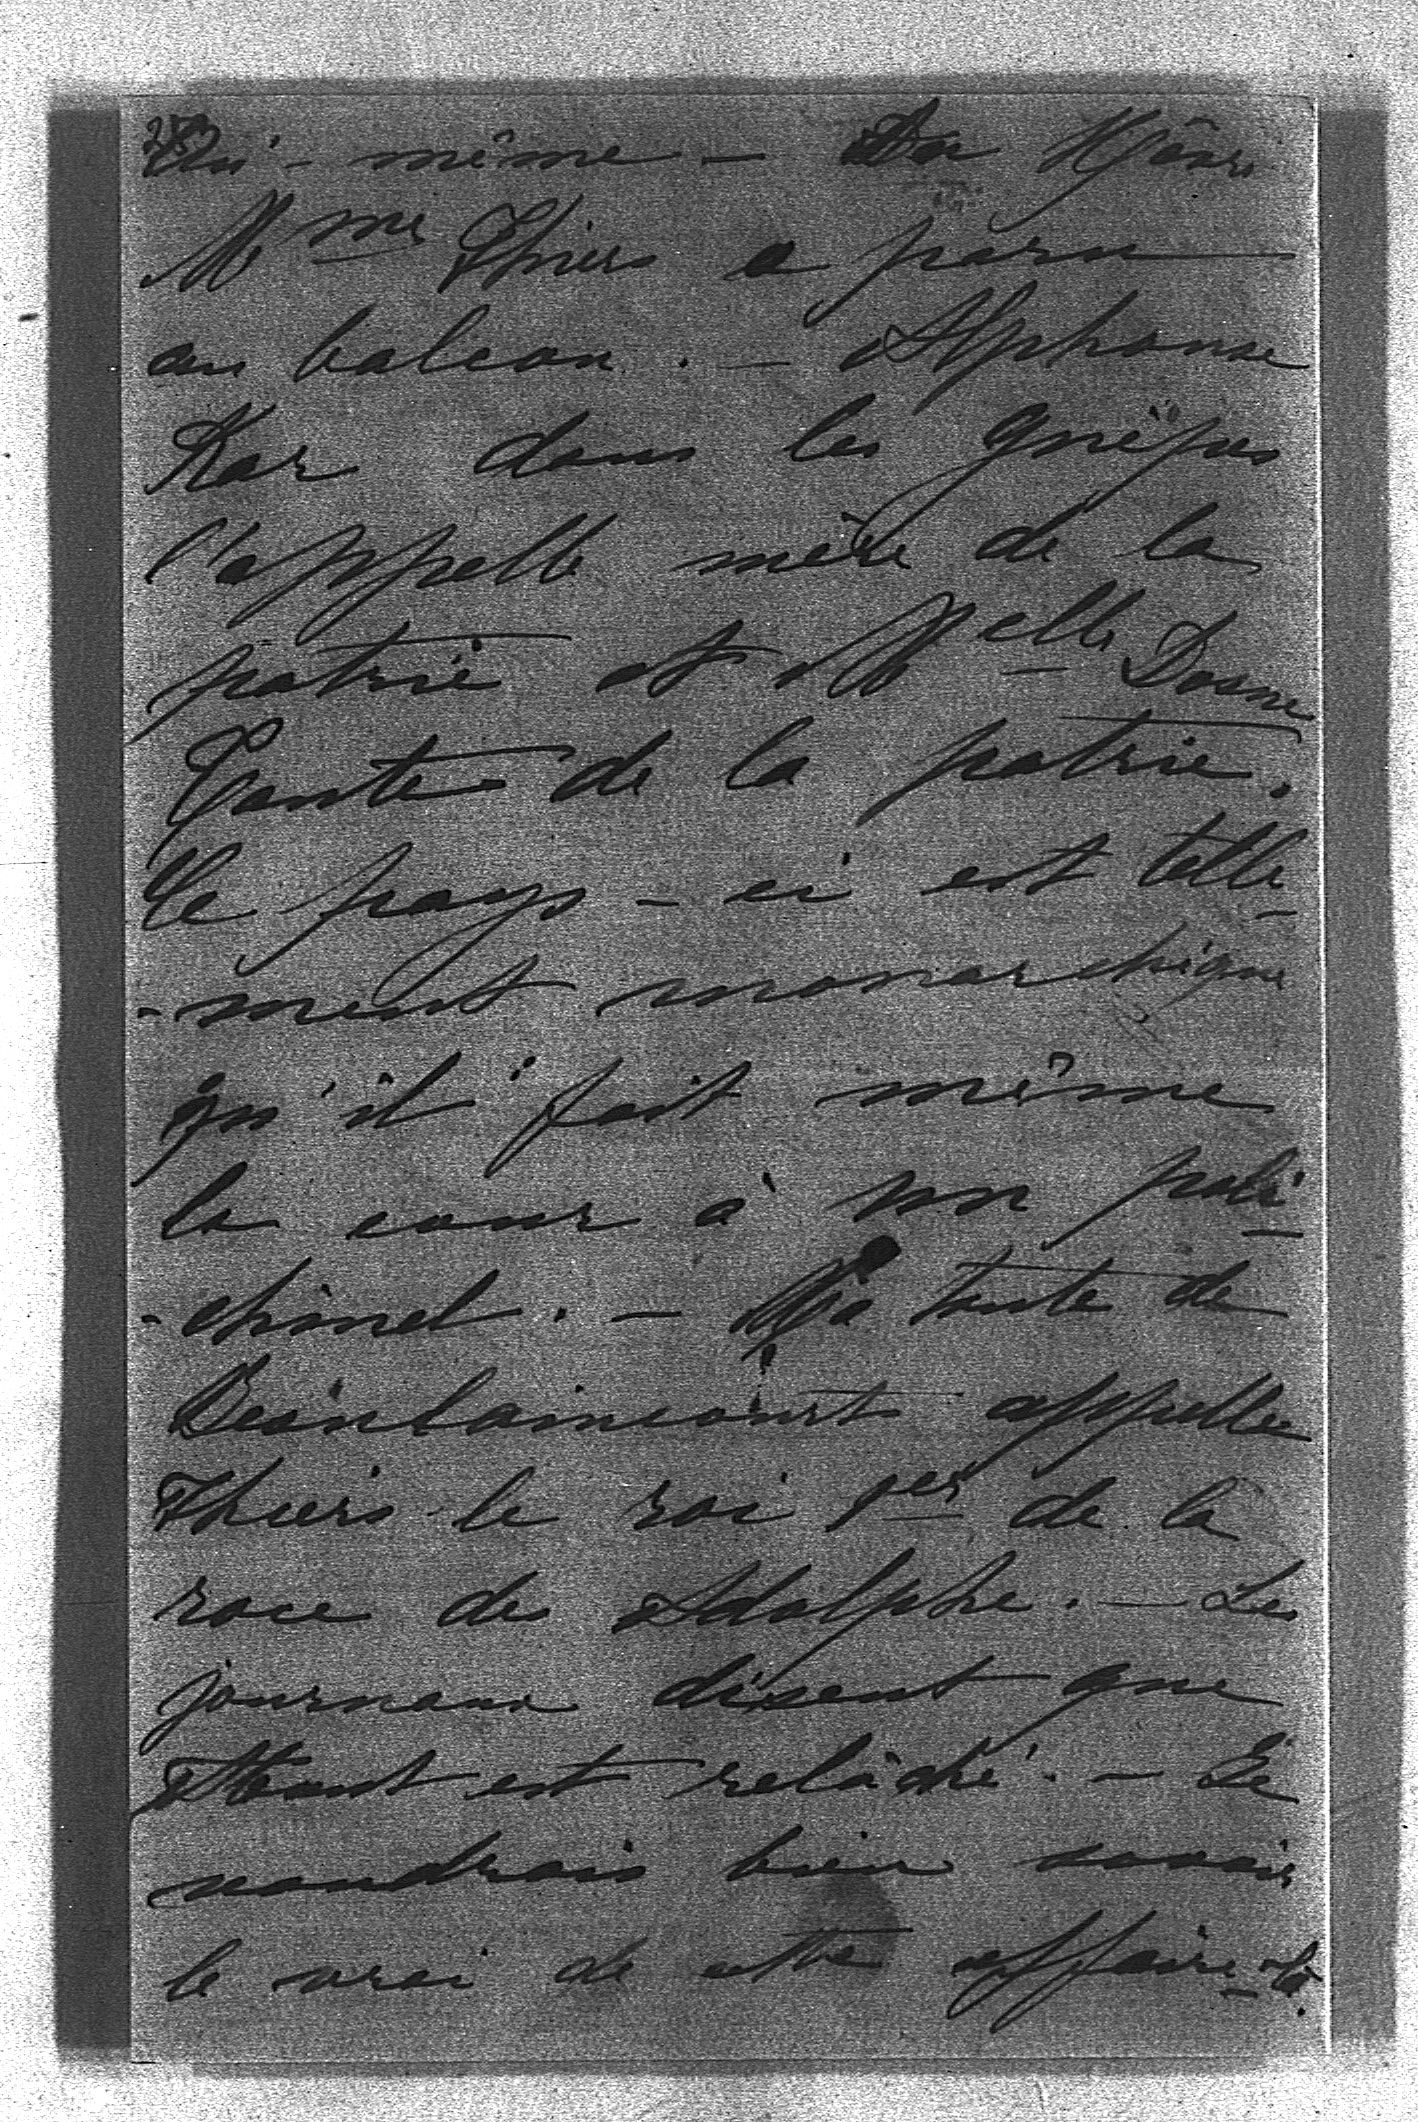 lui-même — Au Hâvre
Mme Thiers a paru
au balcon. — Alphonse
Kar dans les guêpes
l'appelle mère de la
patrie et Melle Dosne
Tante de la patrie.
Ce pays-ci est telle-
-ment monarchique
qu'il fait même
la cour à un poli-
-chinel. — Ma tante de
Beinlaincourt appelle
Thiers le roi 1er de la
race des Adolphe. — Les
journaux disent que
est relâché. — Je
voudrais bien savoir
le vrai de cette affaire-là.